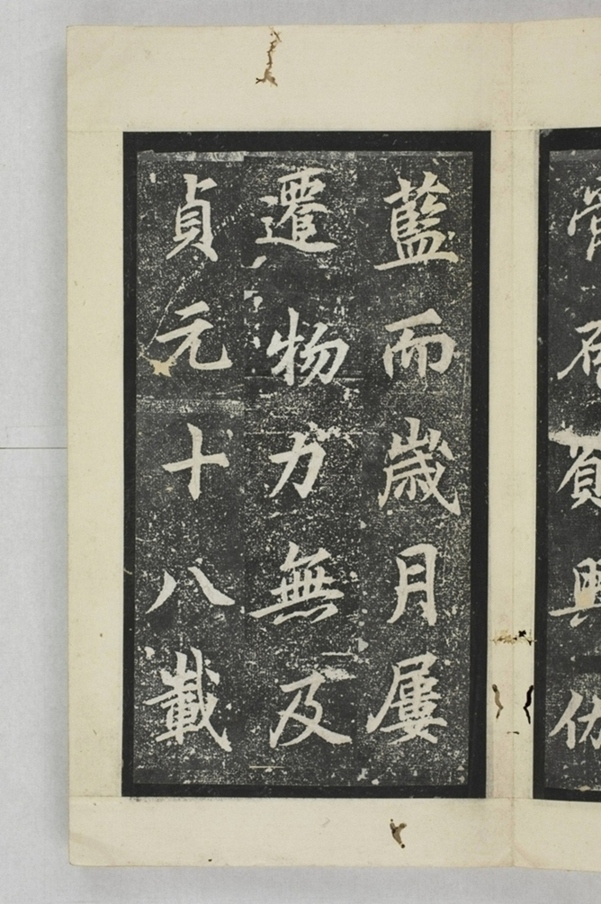 藍而歲月屢
遷物力無及
貞元十八載